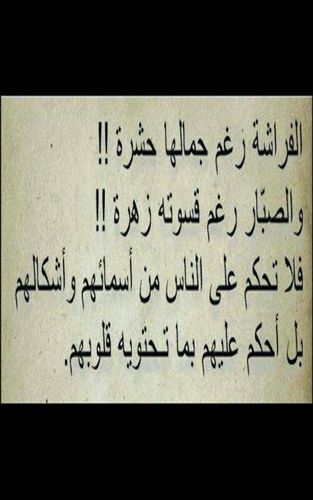 الفراشة رغم جمالها حشرة !!
والصبّار رغم قسوته زهرة !!
فلا تحكم على الناس من أسمائهم وأشكالهم
بل أحكم عليهم بما تحتويه قلوبهم.